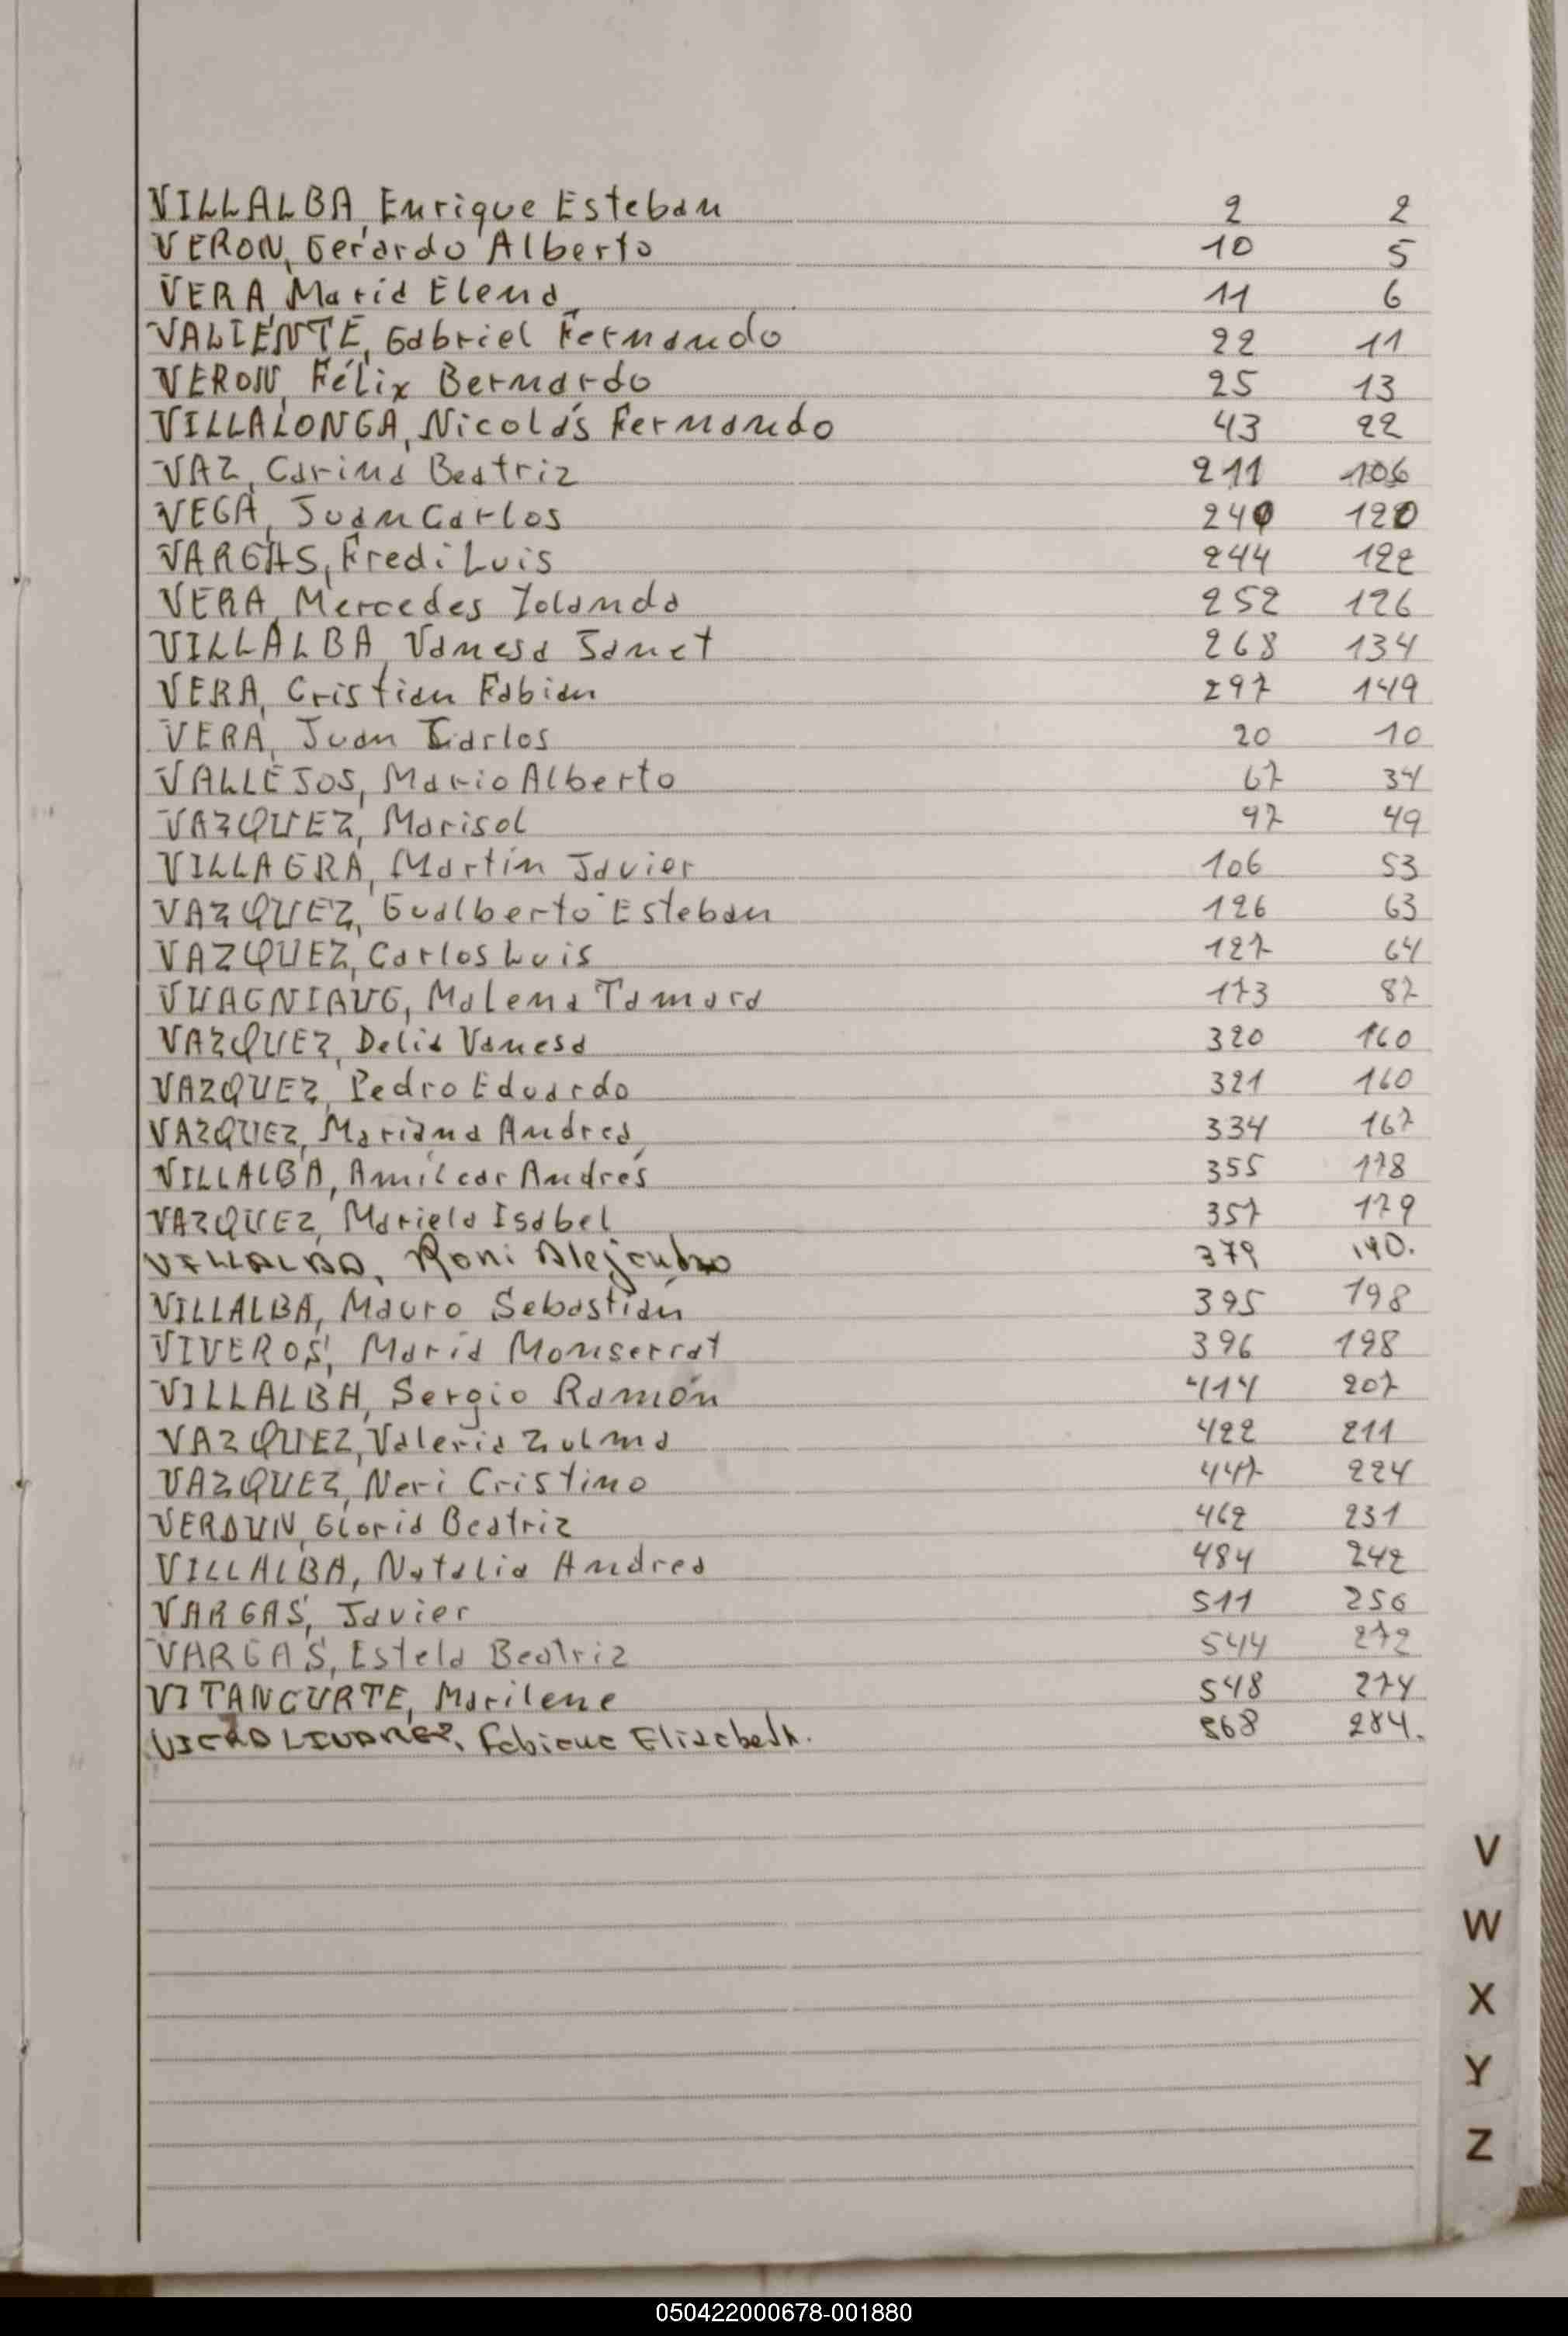 VILLALBA, Enrique Esteban 2 2
VERON, Gerardo Alberto 10 5
VERA, Maria Elena 11 6
VALIENTE, Gabriel Fernando 22 11
VERON, Félix Bernardo 25 13
VILLALONGA, Nicolás Fernando 43 22
VAZ, Carina Beatriz 211 106
VEGA, Juan Carlos 240 120
VARGAS, Fredi Luis 244 122
VERA, Mercedes Iolanda 252 126
VILLALBA, Vanesa Janet 268 134
VERA, Cristian Fabian 297 149
VERA, Juan Carlos 20 10
VALLEJOS, Mario Alberto 67 34
VAZQUEZ, Marisol 97 49
VILLAGRA, Martín Javier 106 53
VAZQUEZ, Gualberto Esteban 126 63
VAZQUEZ, Carlos Luis 127 64
VUAGNIAUG, Malena Tamara 173 87
VAZQUEZ, Delia Vanesa 320 160
VAZQUEZ, Pedro Eduardo 321 160
VAZQUEZ, Mariana Andrea 334 167
VILLALBA, Amílcar Andrés 355 178
VAZQUEZ, Mariela Isabel 357 179
VILLALBA, Roni Alejandro 379 190.
VILLALBA, Mauro Sebastián 395 198
VIVEROS, María Monserrat 396 198
VILLALBA, Sergio Ramón 414 207
VAZQUEZ, Valeria Zulma 422 211
VAZQUEZ, Neri Cristino 447 224
VERDUN, Gloria Beatriz 462 231
VILLALBA, Natalia Andrea 484 242
VARGAS, Javier 511 256
VARGAS, Estela Beatriz 544 272
VITANCURTE, Marilene 548 274
Fabiana Elizabeth. 568 284.
V
W
X
Y
Z
050422000678-001880